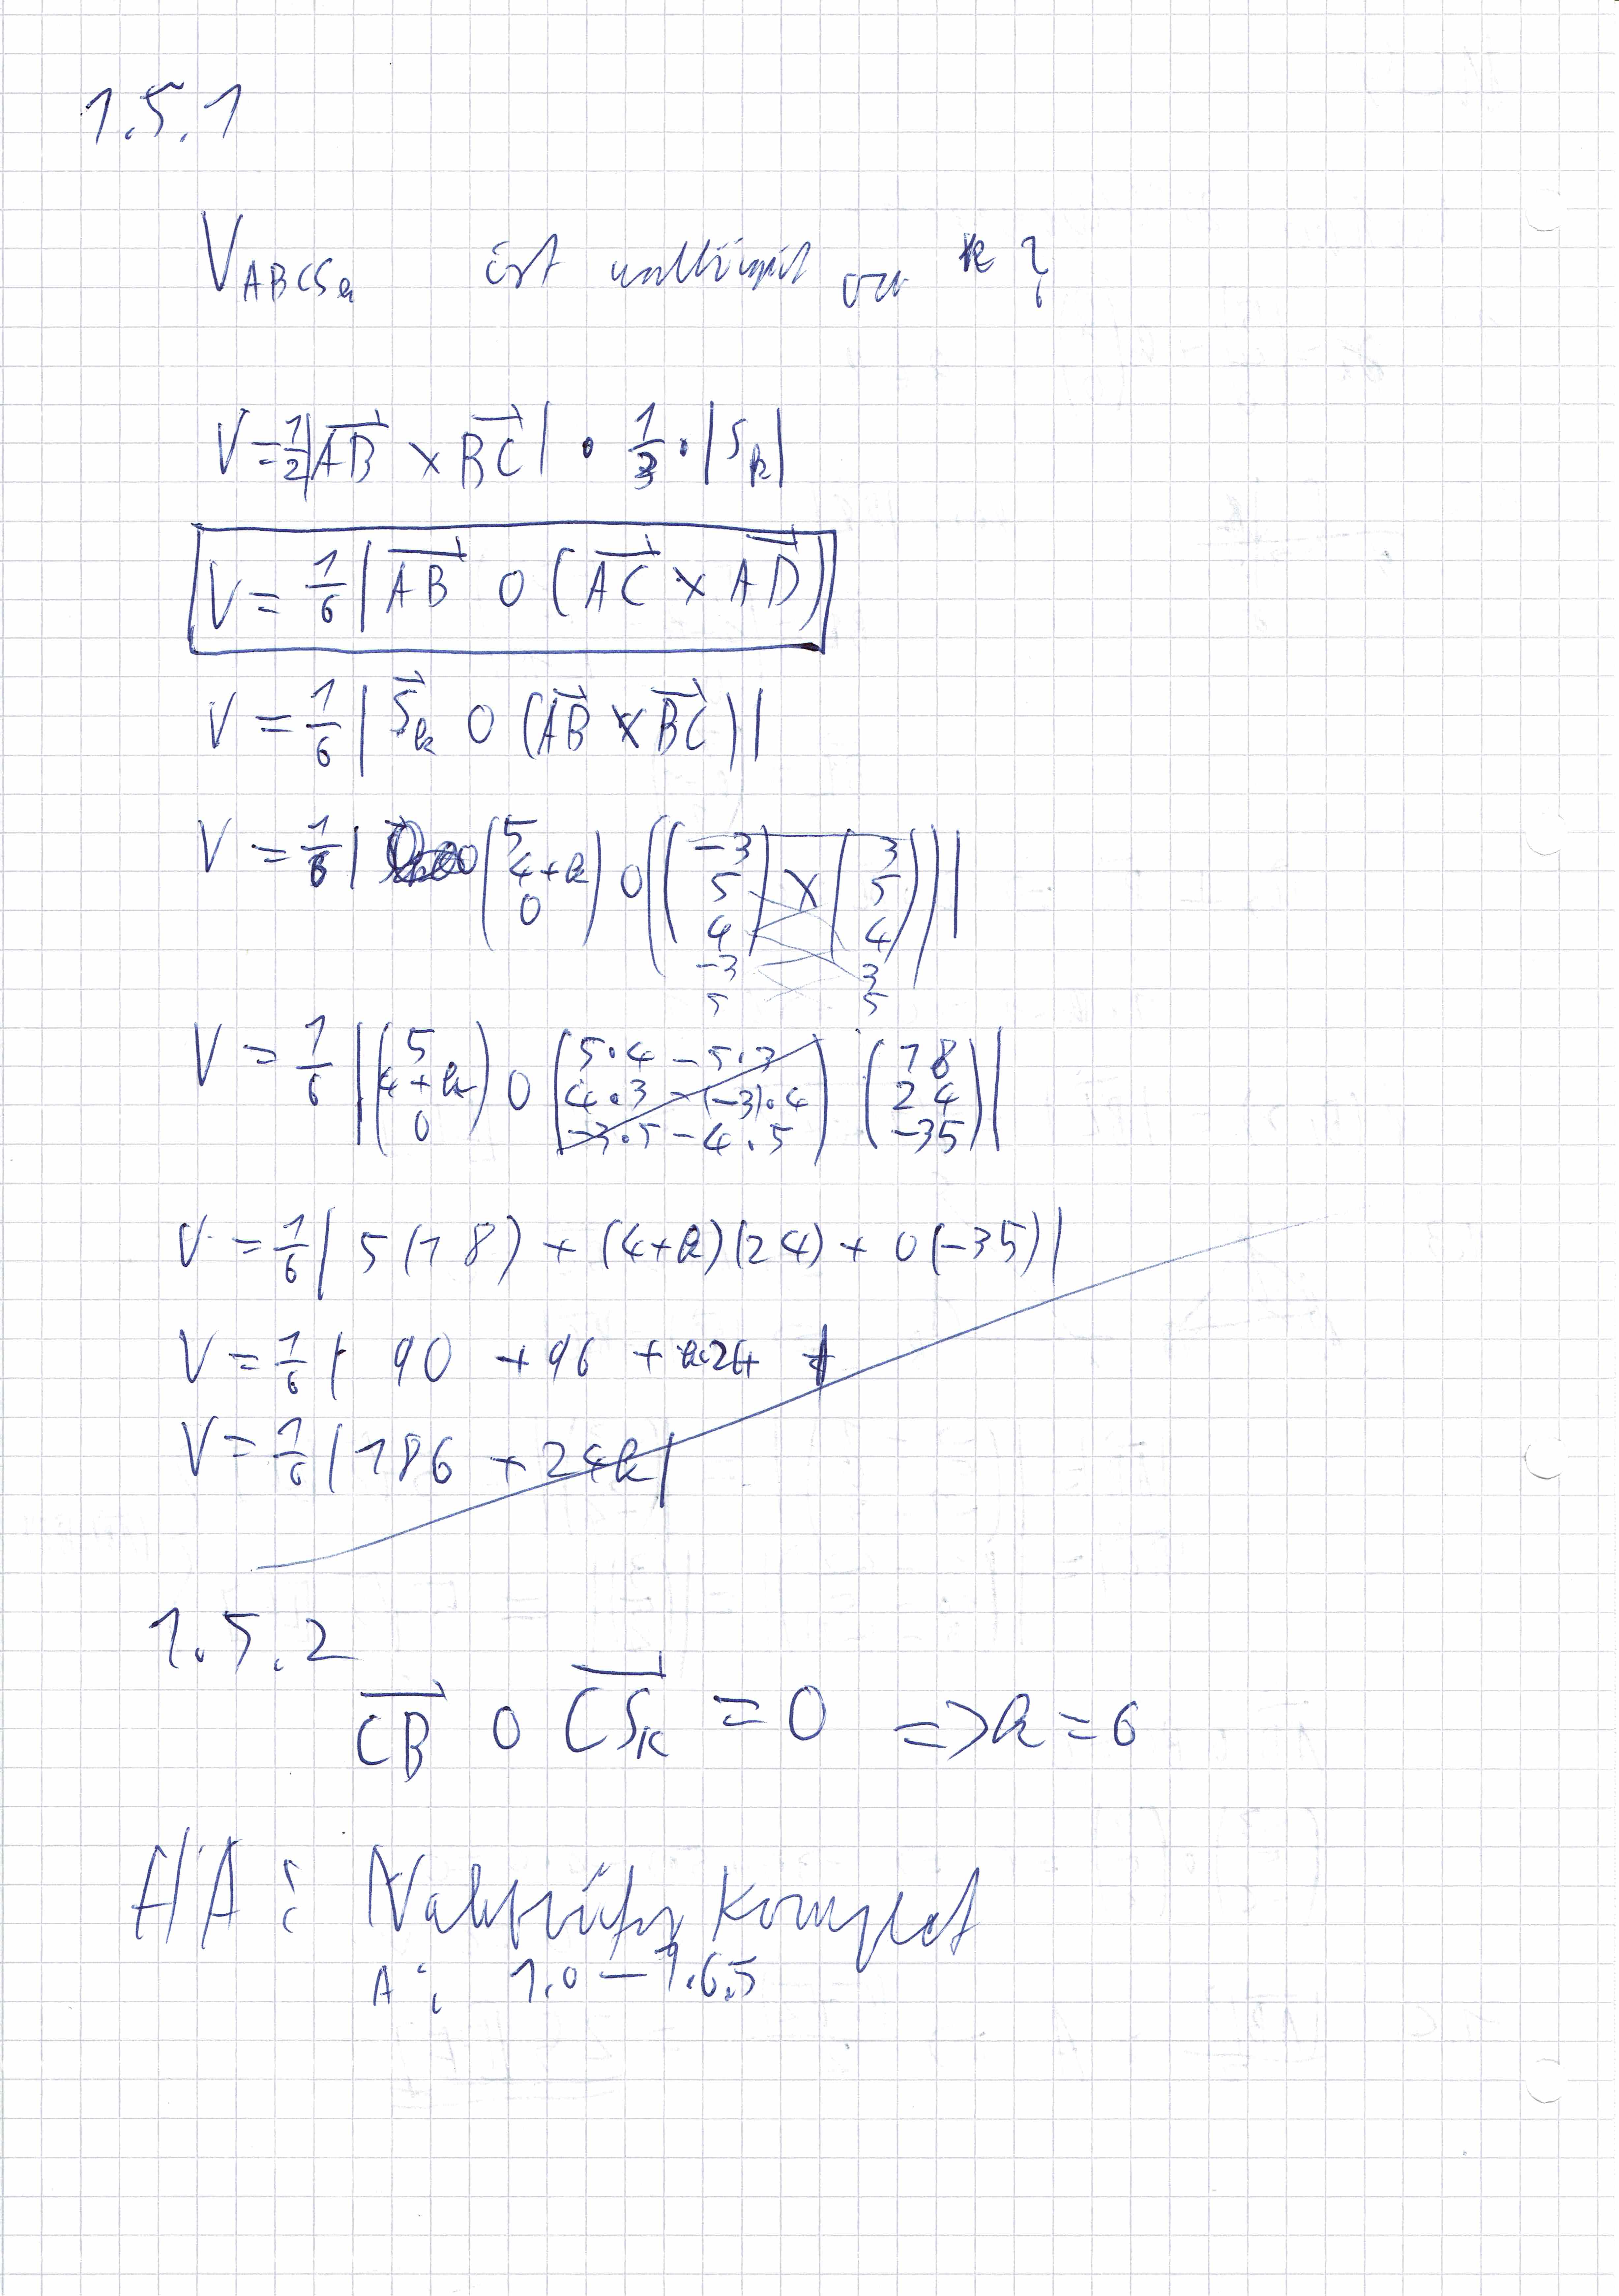 1.5.1
V_ABCSk ist unabhängig von k ?
V = 1/2 |AB⃗ × BC⃗| · 1/3 · |S_k|
V = 1/6 | AB⃗ o (AC⃗ × AD⃗)|
V = 1/6 | S⃗_k o (AB⃗ × BC⃗)|
V = 1/6 | (5, 4+k, 0) o ((-3, 5, 4) × (3, 5, 4))|
-3 3
5 5
V = 1/6 |(5, 4+k, 0) o (5·4 - 5·3, 4·3 - (-3)·4, -3·5 - 4·5) (18, 24, -35)|
V = 1/6 | 5(18) + (4+k)(24) + 0(-35)|
V = 1/6 | 90 + 96 + k·24 |
V = 1/6 | 186 + 24k|
1.5.2
CB⃗ o CS_k⃗ = 0 => k = 6
HA: komplet
A: 1.0 – 1.6.5